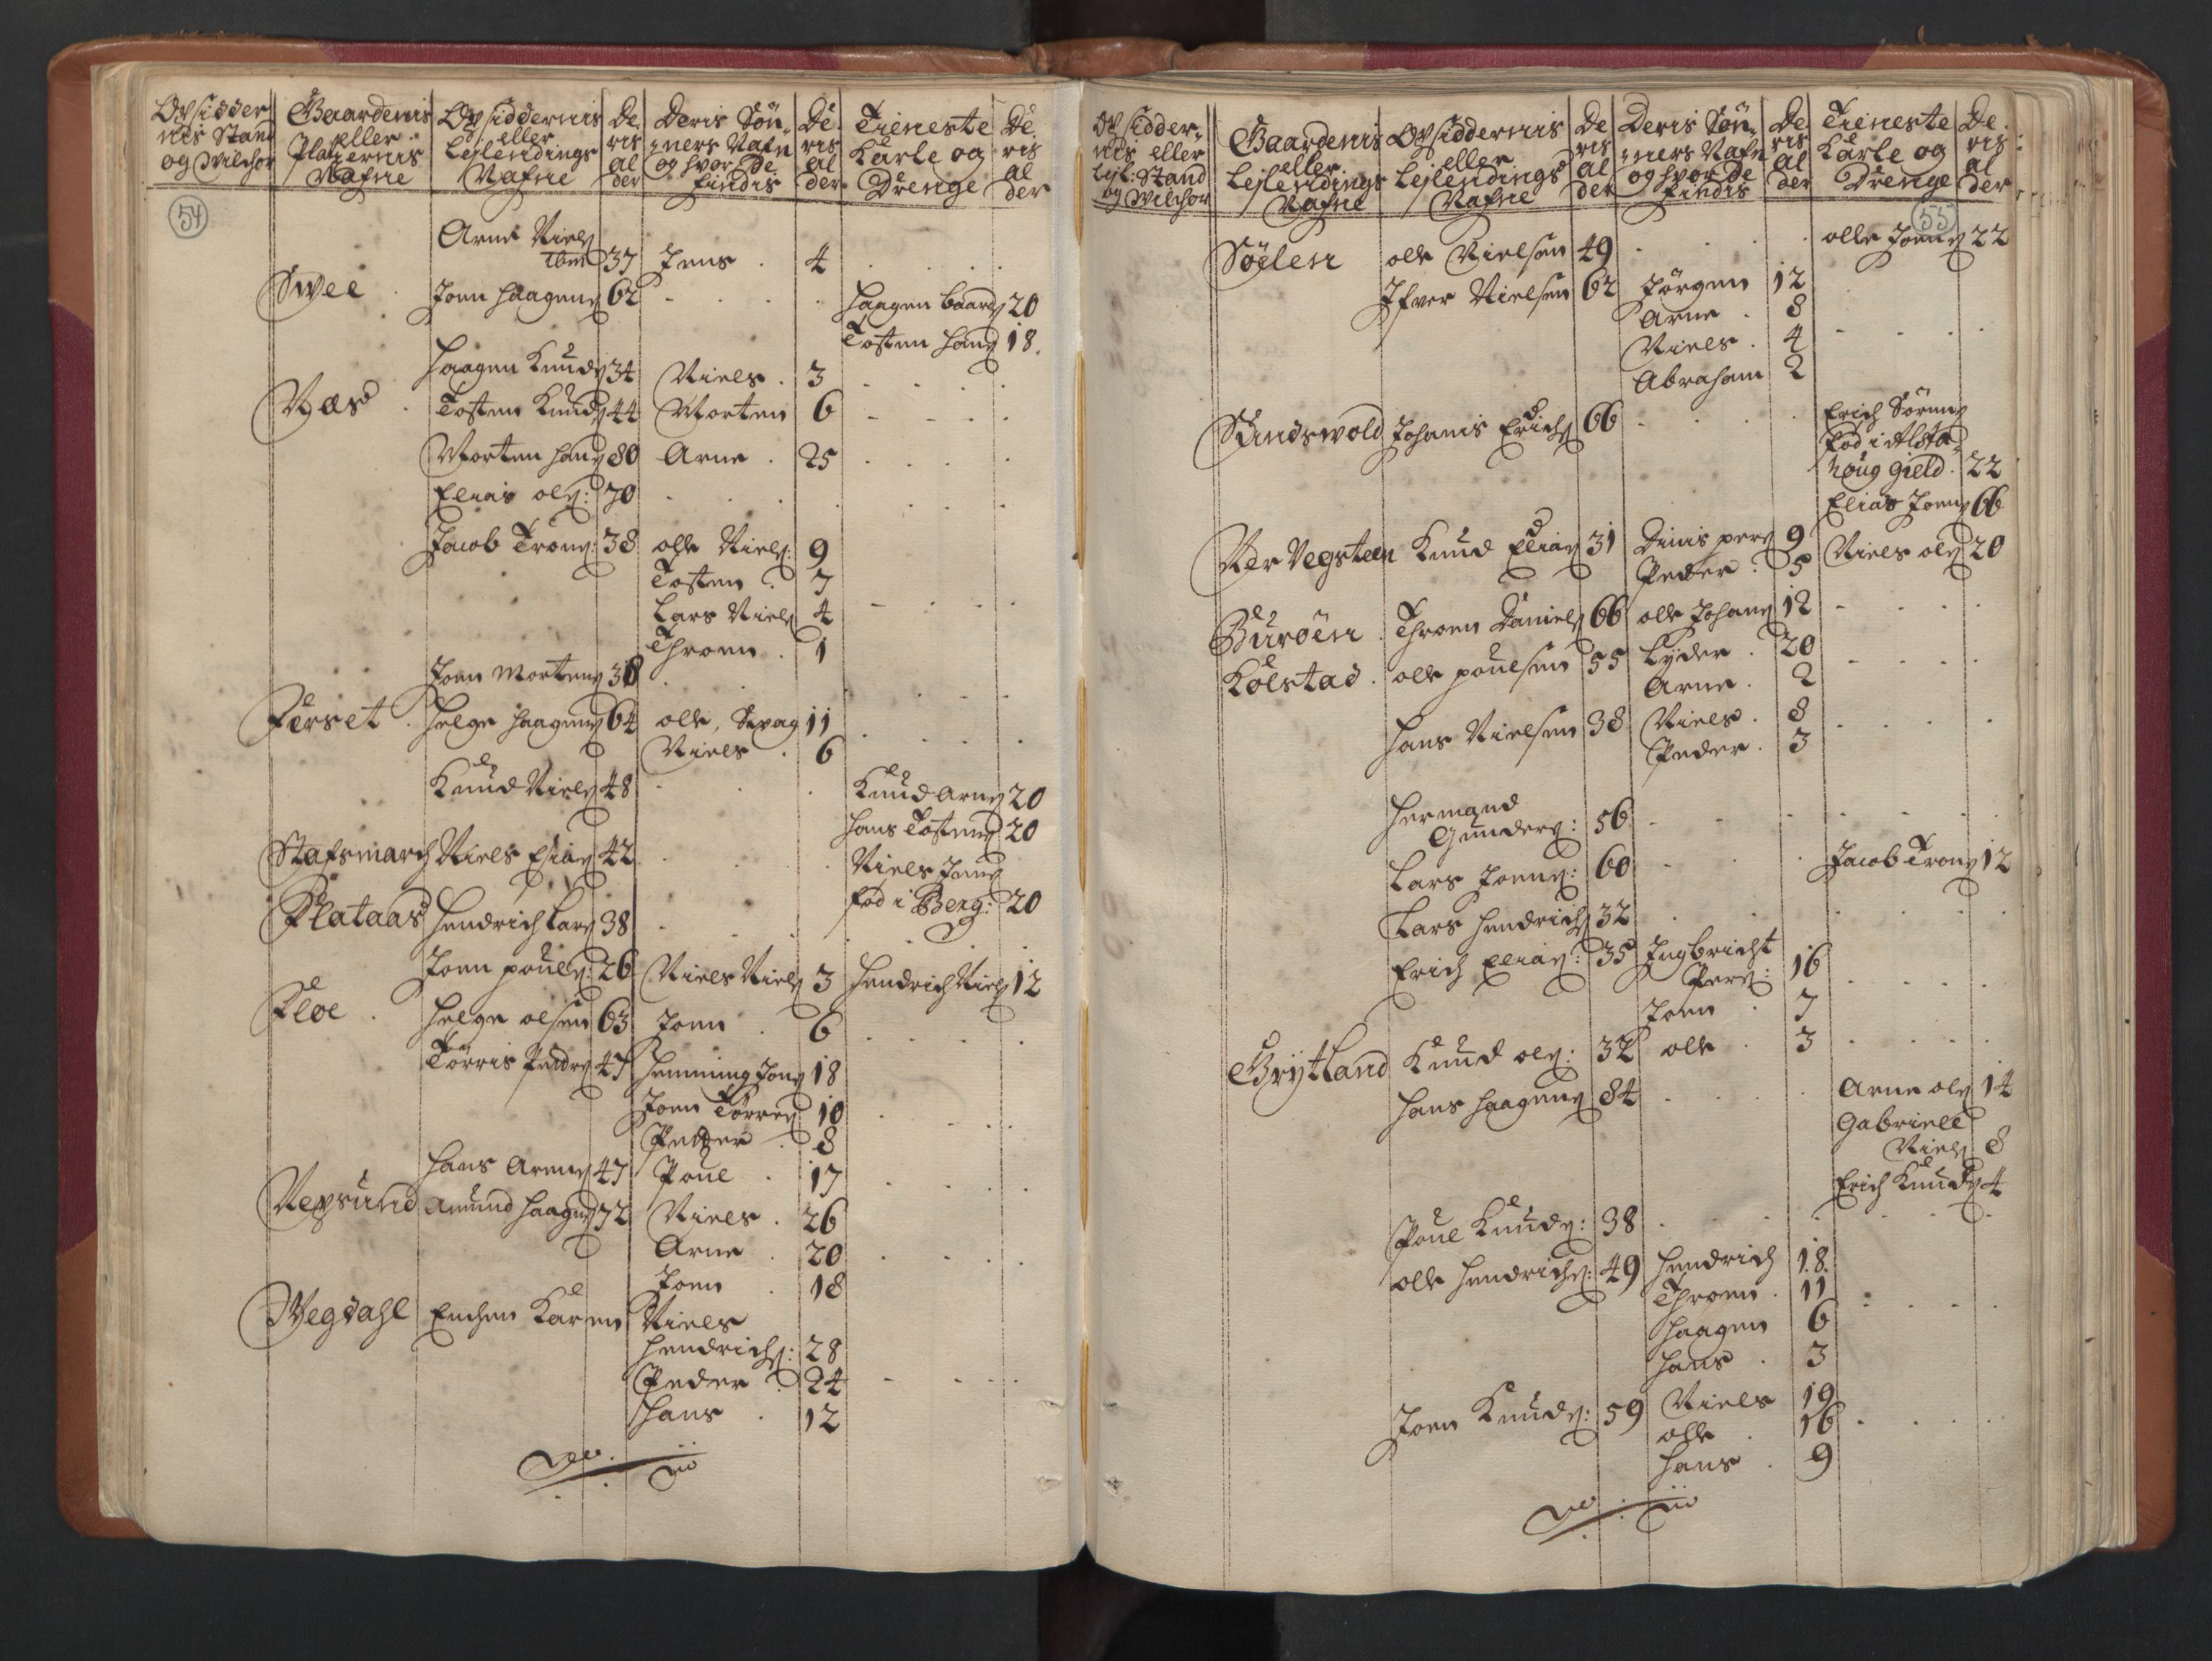 Opsidder
nis Stand
og Vilchor
Gaardenis
eller
Pladzernis
Nafne
Opsiddernis
eller
Lejlendings
Nafne
De
ris
al
der
Deris Søn-
ners Nafn
og hvor De
findis
De
ris
al
der
Tieneste
Karle og
Drenge
De
ris
al
der
54
Arne Niels
ibm 37 Jens . 4
Svee . Joen Haagens 62 Haagen Baards 20
Tosten Hans 18.
Haagen Knuds 34 Niels . 3
Næs . Tosten Knuds 44 Morten 6
Morten Hans 80 Arne . 25
Elias Ols: 70
Jacob Trons: 38 Olle Niels: 9
Tosten 7
Lars Niels 4
Throen . 1
Joen Mortens 38
Førset . Helge Haagens 64 Olle, Svag 11
Niels . 6
Knud Niels 48 Knud Arns 20
Hans Tostens 20
Stafsmarch Niels Elias 42 Niels Jens
fød i Berg: 20
Flataas Hendrich Lars 38
Joen Pouls: 26 Niels Niels 3 Hendrich Niels 12
Floe . Helge Olsen 63 Joen . 6
Tørris Peders 47 Hemming Jons 18
Joen Tørres 10
Peder . 8
Hans Arens 47 Poul . 17
Nepsund Amund Haagens 72 Niels . 26
Arne . 20
Joen . 18
Wegdahl Enchen Karen Niels
Hendrichs: 28
Peder 24
Hans . 12
Opsidder-
nis eller
Lejl: Stand
og Vilchor
Gaardenis
eller
Lejlendings
Nafne
Opsiddernis
eller
Lejlendings
Nafne
De
ris
al
der
Deris Søn-
ners Nafn
og hvor De
findis
De
ris
al
der
Tieneste
Karle og
Drenge
De
ris
al
der
55
Søelen Olle Nielsen 49 Olle Joens 22
Ifver Nielsen 62 Jørgen 12
Arne . 8
Niels . 4
Abraham 2
Sundswold Johanis Erichs 66 Erich Sørens
fød i Alsta-
houg gield. 22
Elias Joens 66
Nervegsteen Knud Elias 31 Dinis Pers 9 Niels Ols 20
Peder . 5
Burøen . Throen Daniels 66 Olle Johans 12
Kolstad . Olle Poulsen 55 Lyder . 20
Arne . 2
Hans Nielsen 38 Niels . 8
Peder . 3
Hermand
Gunders: 56
Lars Joens: 60 Jacob Trons 12
Lars Hendrichs 32
Erich Elias: 35 Ingbricht
Pers: 16
Joen . 7
Grytland Knud Ols: 32 Olle . 3
Hans Haagens 84 Arne Ols 14
Gabriell
Niels 8
Erich Knuds 4
Poul Knuds: 38
Olle Hendrichs: 49 Hendrich 18.
Throen . 11
Haagen 6
Hans . 3
Joen Knuds: 59 Niels 19
Olle . 16
Hans . 9